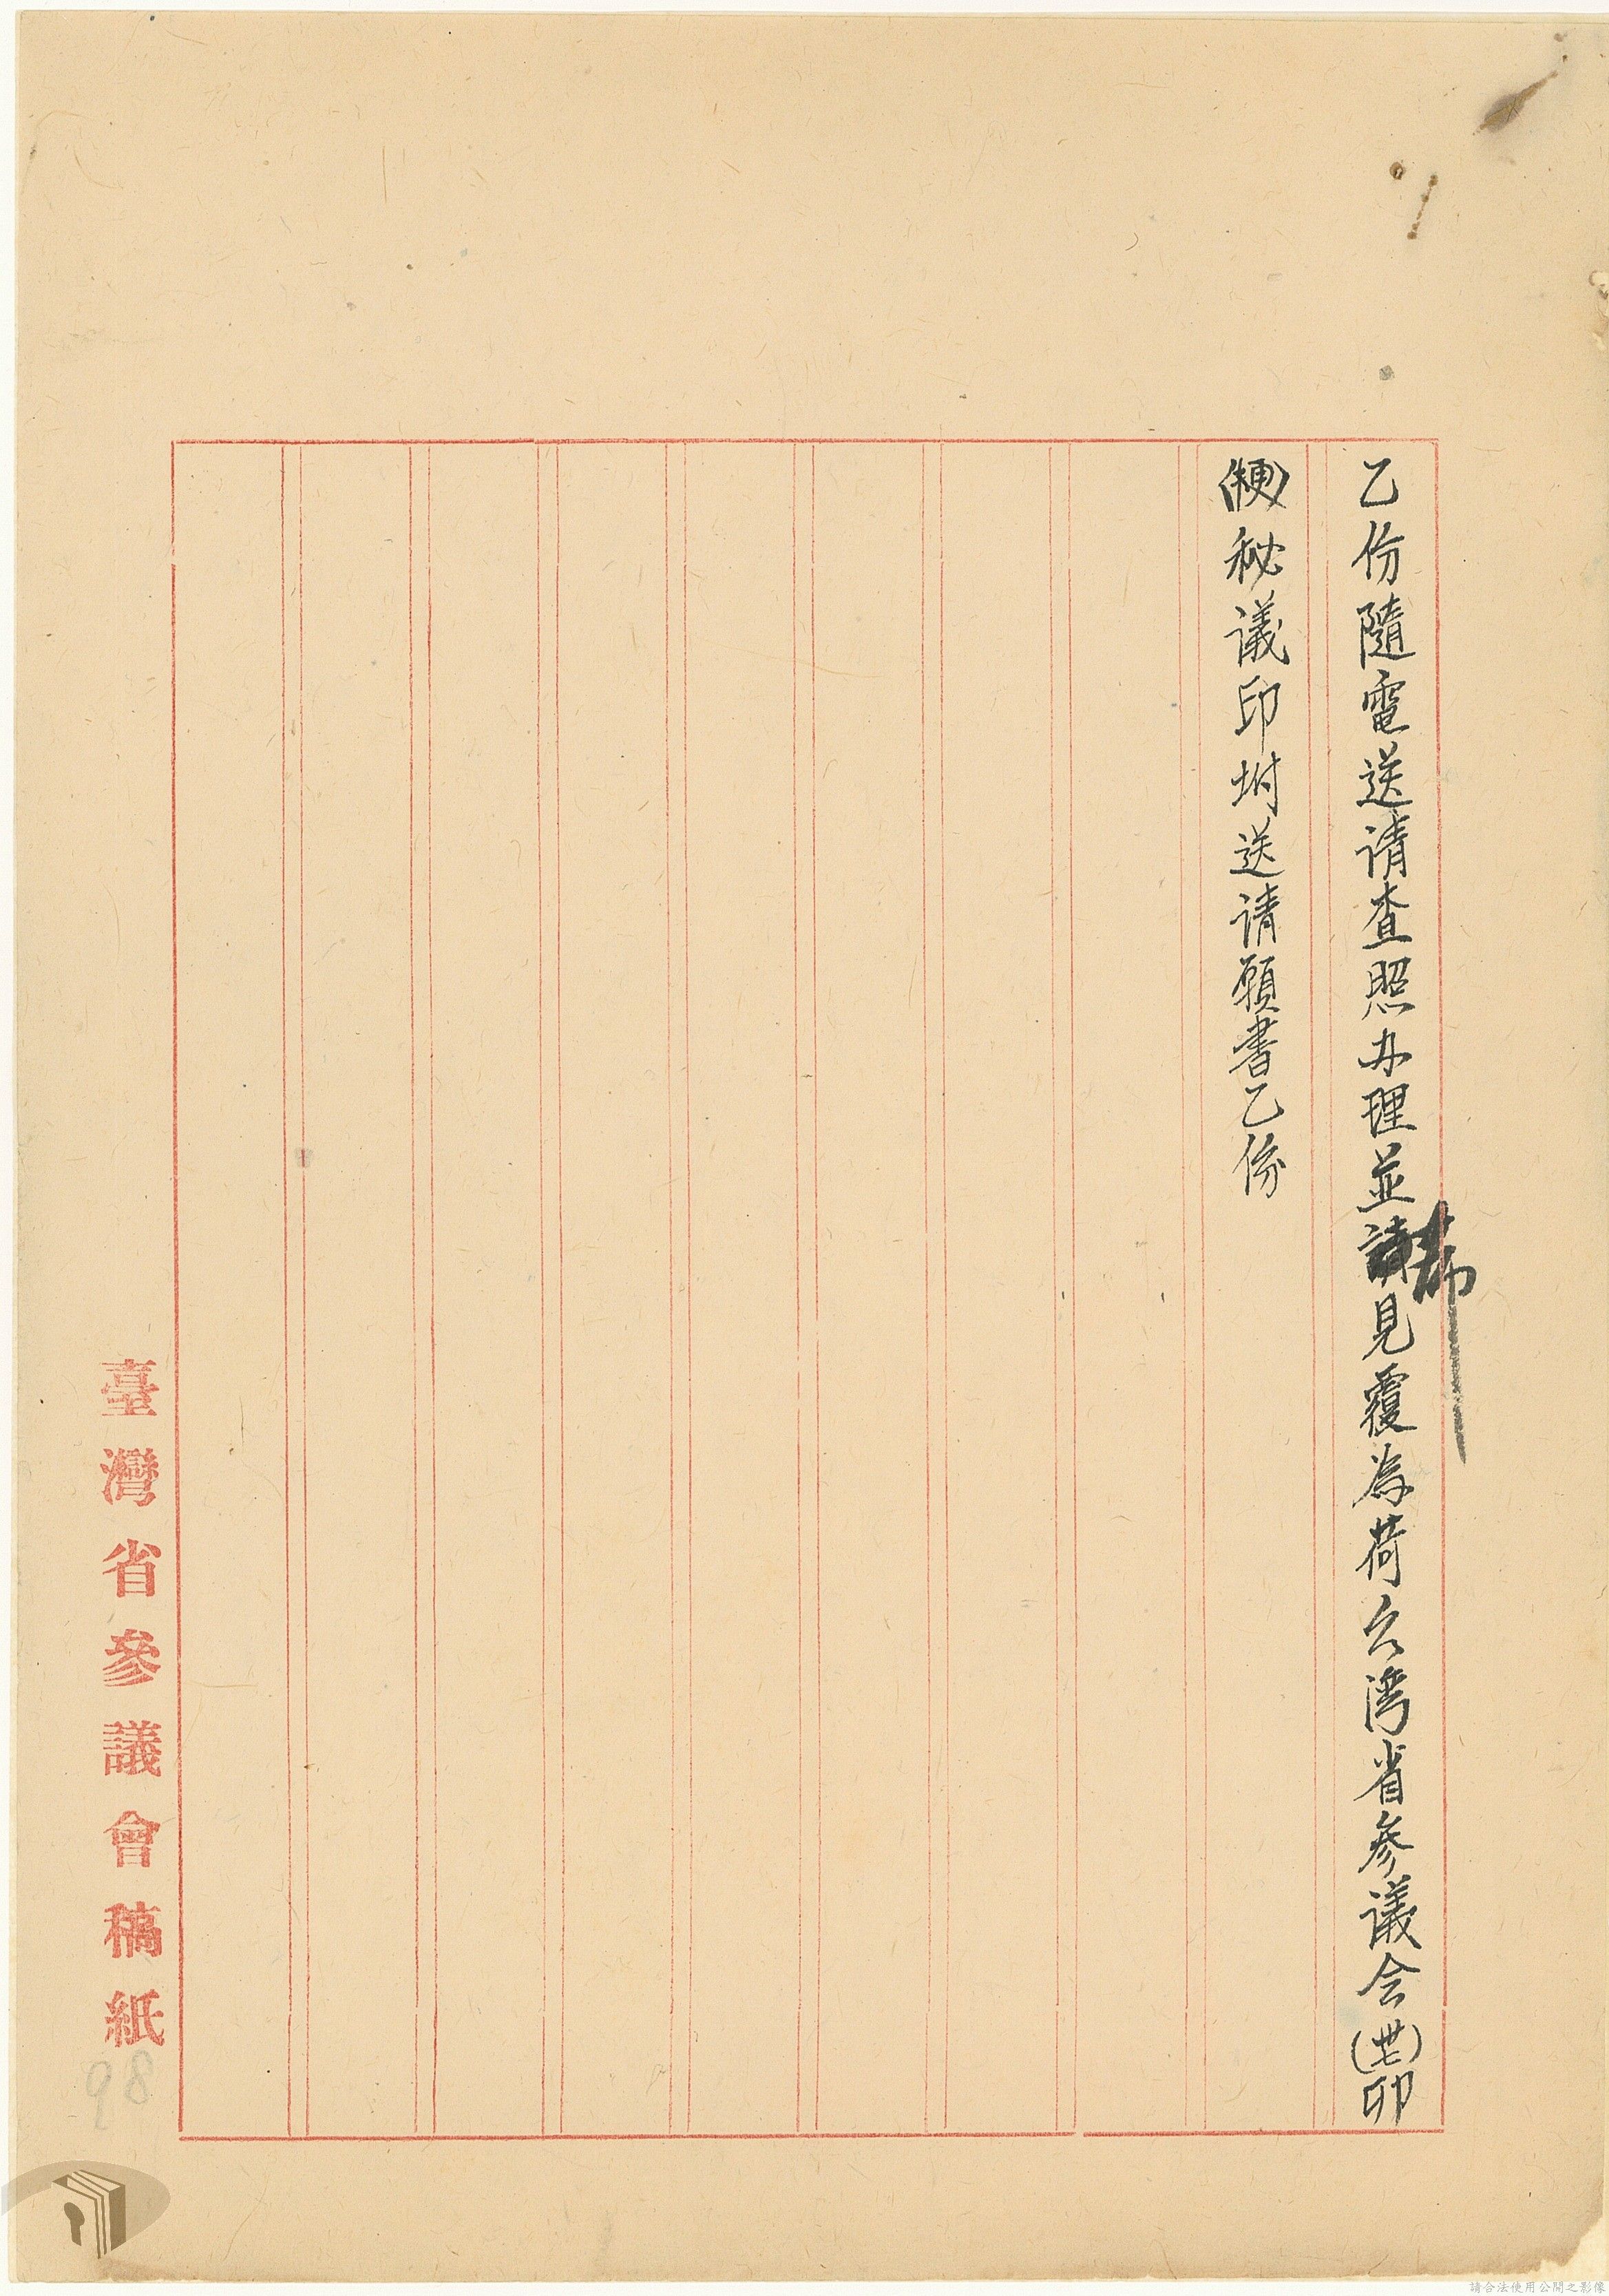 乙份隨電送请查照办理並希見覆為荷台湾省参议会(卅七)卯
(梗)秘议印坿送请願書乙份
臺灣省參議會稿紙
98
請合法使用公開之影像